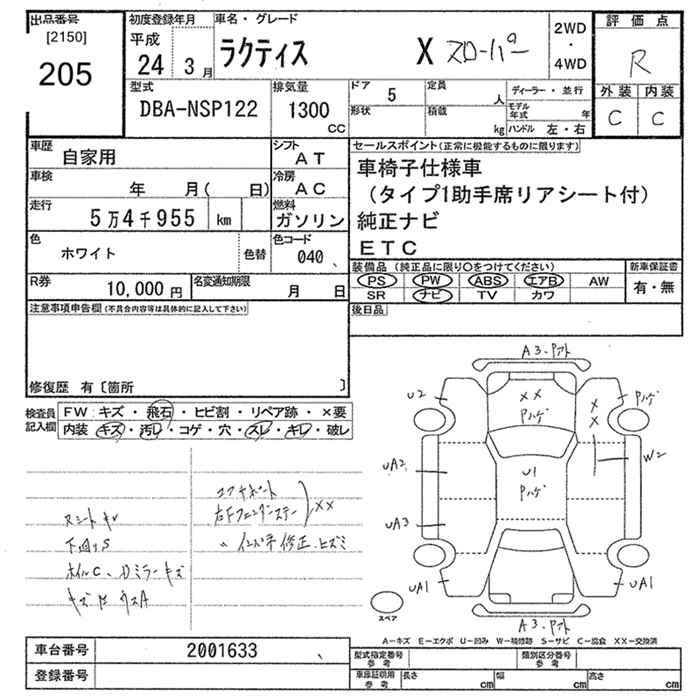 出品番号
[2150]
205
初度登録年月
平成
24 3月
車名・グレード
ラクティス X スローパー
2WD
・
4WD
評価点
R
外装 内装
C C
型式
DBA-NSP122
排気量
1300
CC
ドア 5
形状
定員 人
積載 kg
ディーラー・並行
モデル年式 年
ハンドル 左・右
車歴
自家用
シフト
AT
車検
年 月( 日)
冷房
AC
走行
5万4千955 km
燃料
ガソリン
色
ホワイト
色替
色コード
040
R券
10,000 円
名変通知期限
月 日
セールスポイント(正常に機能するものに限ります)
車椅子仕様車
(タイプ1助手席リアシート付)
純正ナビ
ETC
装備品 (純正品に限り○をつけてください)
PS PW ABS エアB AW
SR ナビ TV カワ
新車保証書
有・無
後日品
注意事項申告欄(不具合内容等は具体的に記入して下さい)
修復歴 有〔箇所 〕
検査員
記入欄
FW: キズ・飛石・ヒビ割・リペア跡・×要
内装 キズ・汚レ・コゲ・穴・スレ・キレ・破レ
コアサポート
右Fフェンダーステー
XX
〃 インパネ 修正、ヒズミ
下回りS
ホイルC、Dミラーキズ
A3、Pアト
U2
XX
Pハゲ
Pハゲ
X
X
UA2
W2
U1
Pハゲ
UA3
UA1
UA1
A3、Pアト
スペア
A-キズ E-エクボ U-凹み W-補修跡 S-サビ C-腐食 XX-交換済
車台番号
2001633
登録番号
型式指定番号
参考
類別区分番号
参考
車庫証明用
参考
長さ cm
幅 cm
高さ cm